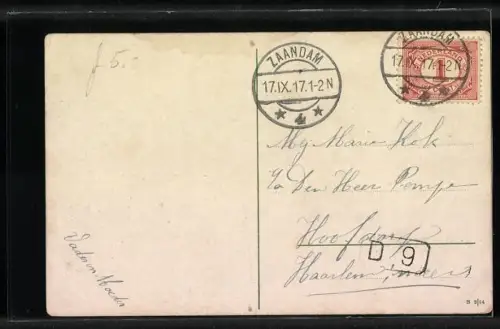 f 5.-
ZAANDAM
17.IX.17.1-2N
4
ZAANDAM
17.IX.17.1-2N
4
NEDERLAND
1
Mej Marie Kok
p/a Den Heer Pompe
Hoofdorp
D 9
Haarlemmermeer
Vader en Moeder